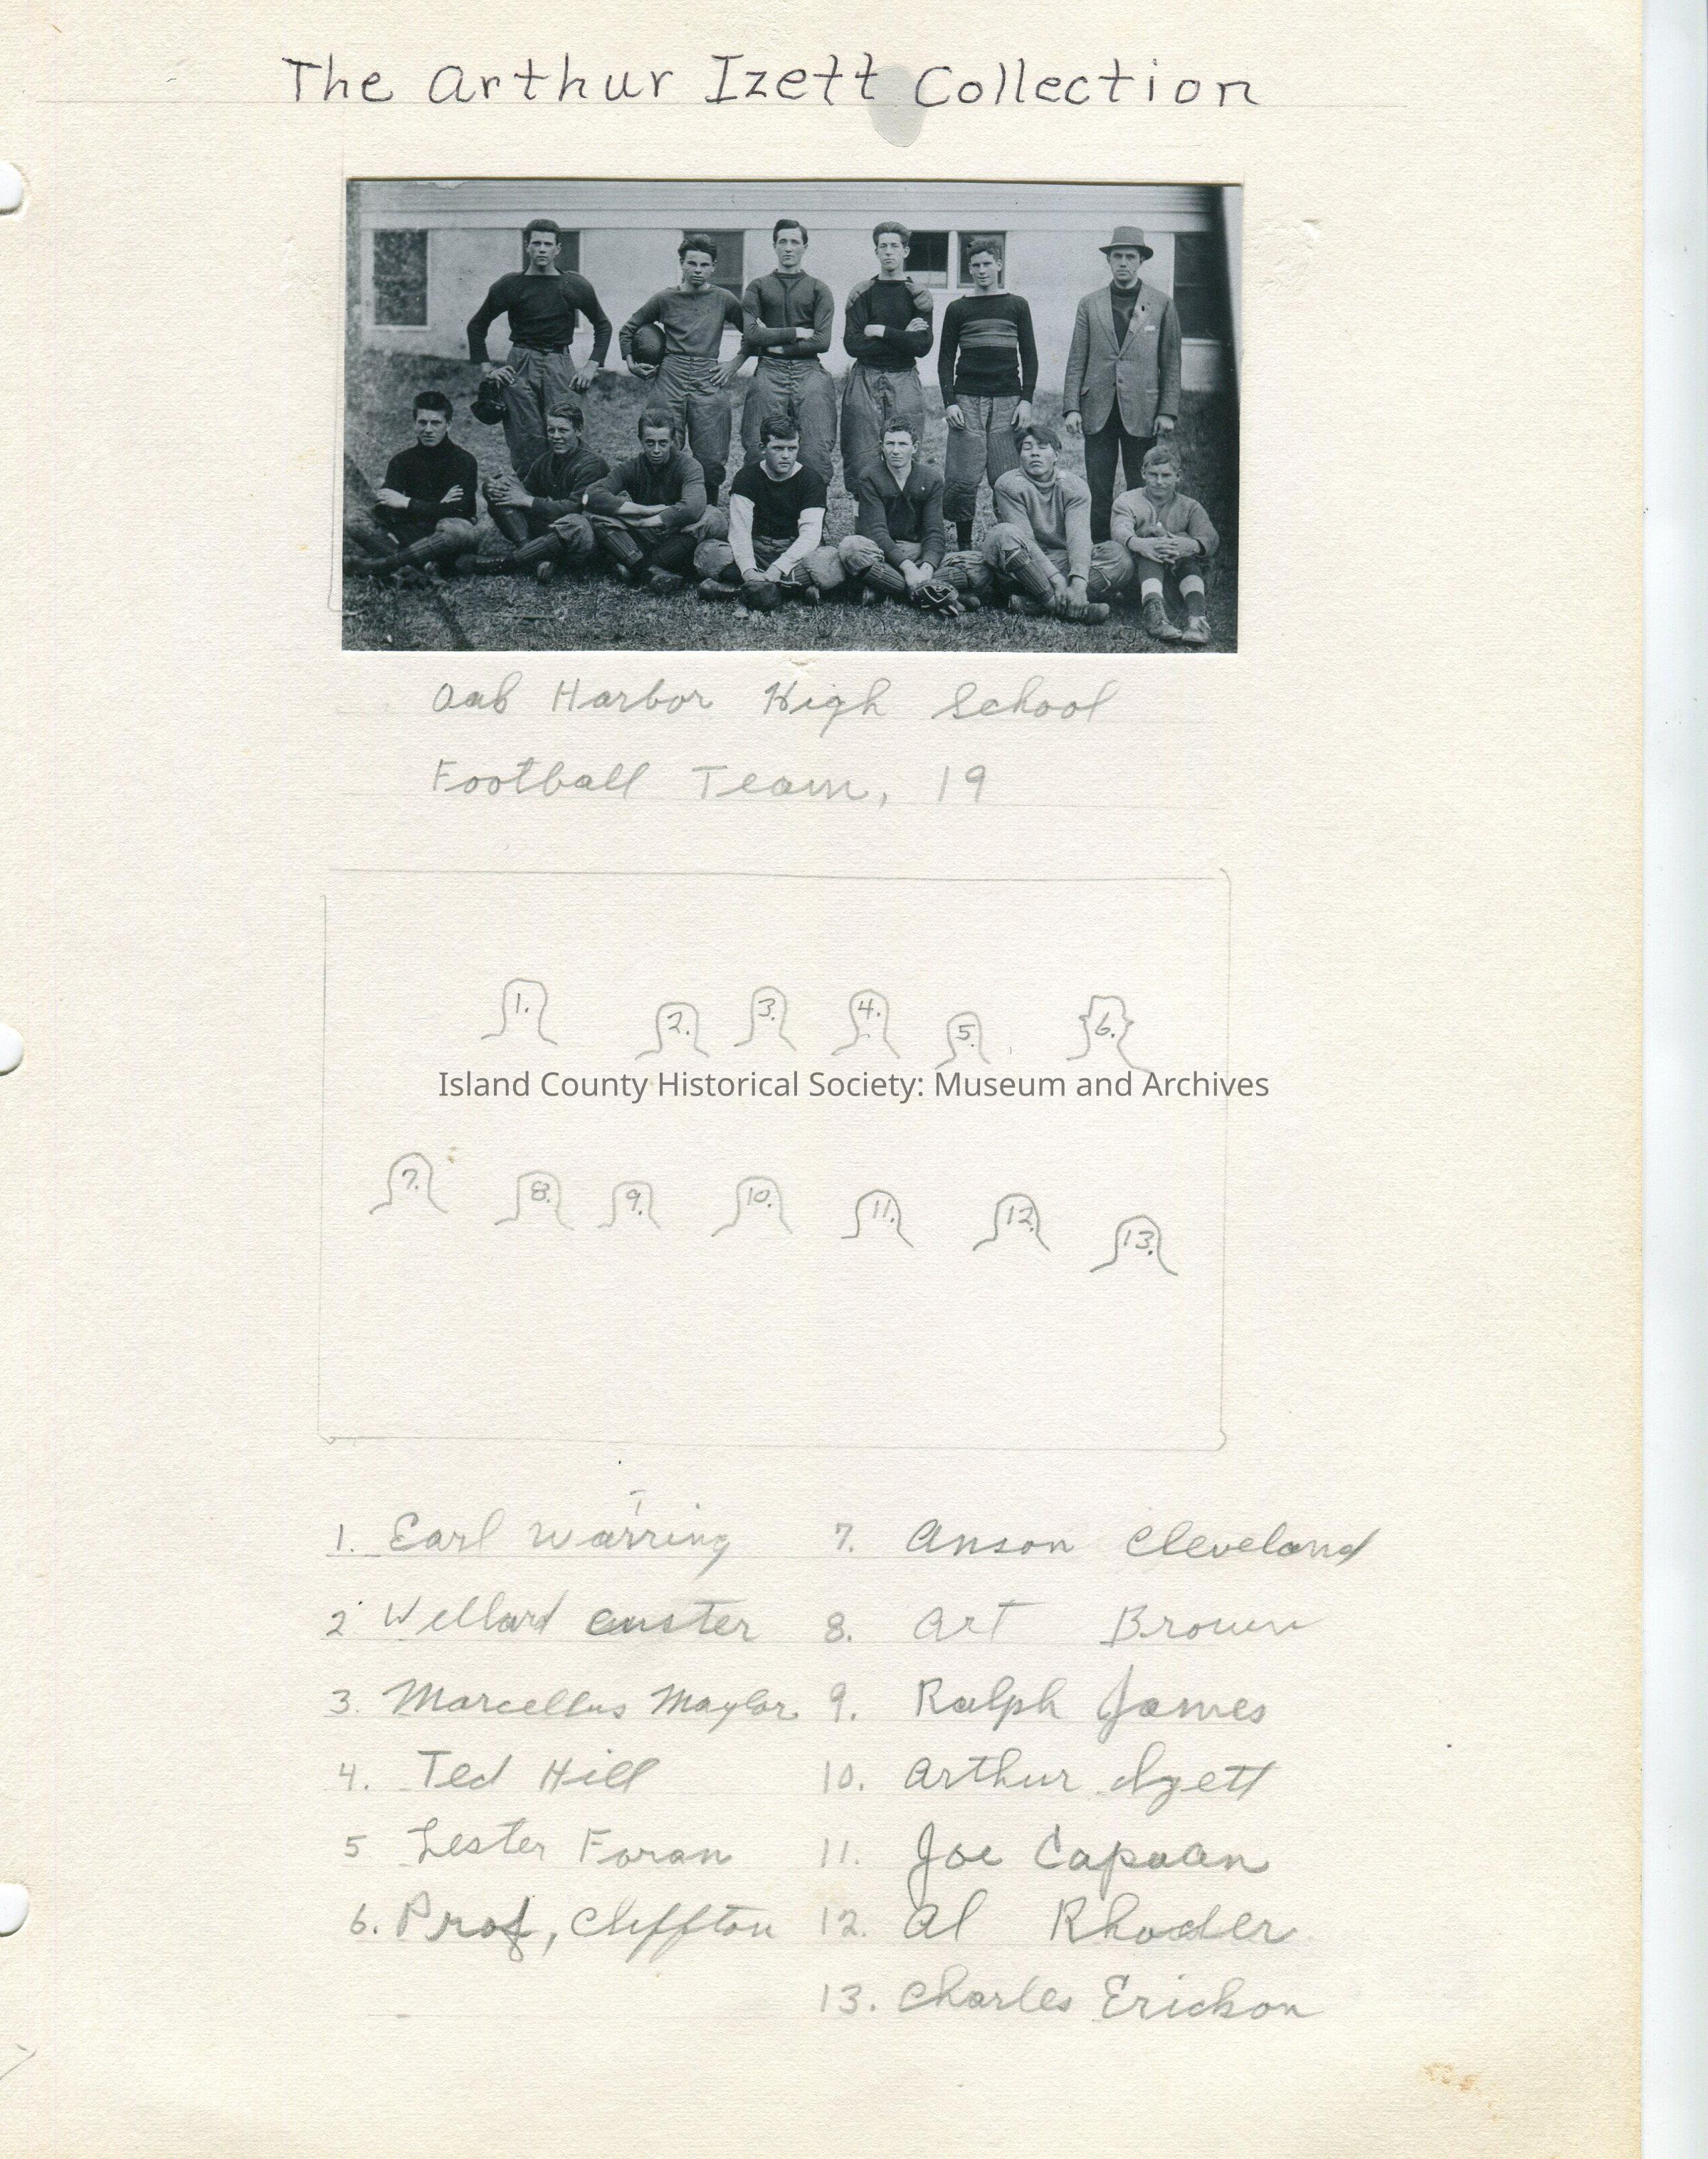 The Arthur Izett Collection
Oak Harbor High School
Football Team, 19
1.
2.
3.
4.
5.
6.
Island County Historical Society: Museum and Archives
7.
8.
9.
10.
11.
12.
13.
1. Earl Warring
7. Anson Cleveland
2 Willard
8. Art Brown
3. Marcellus Maylor
9. Ralph James
4. Ted Hill
10. Arthur Izett
5 Lester Foran
11. Joe Capaan
6. Prof, Cliffton
12. Al Rhoder
13. Charles Erickon